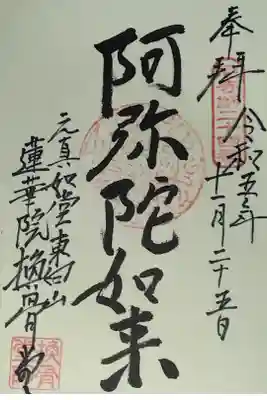 奉拝 令和五年
十一月二十五日
阿弥陀如来
元真如堂東向山
蓮華院換骨堂